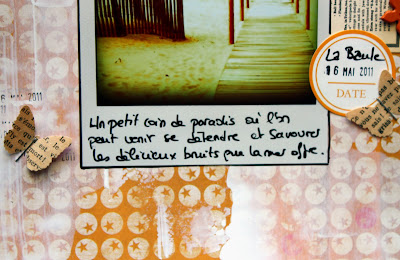 La Baule
16 MAI 2011
DATE
MAI 2011
Un petit coin de paradis où l'on
peut venir se détendre et savourer
les délicieux bruits que la mer offre.